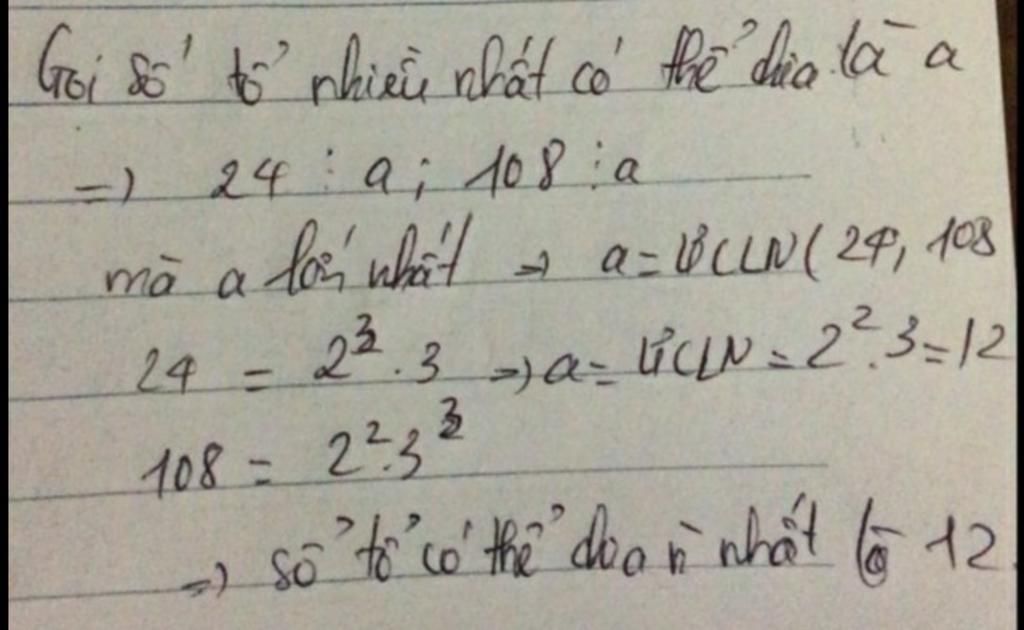 Gọi số tổ nhiều nhất có thể chia là a
=) 24 ⋮ a; 108 ⋮ a
mà a lớn nhất => a = ƯCLN( 24, 108
24 = 2³ . 3 => a = ƯCLN = 2² . 3 = 12
108 = 2² . 3³
=) số tổ có thể chia n nhất là 12